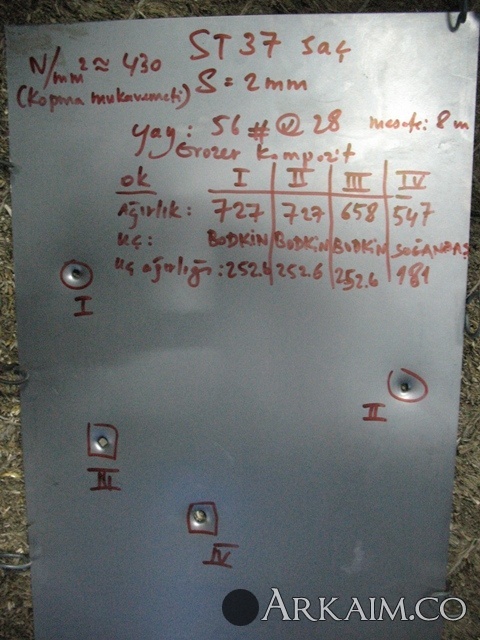 ST 37 saç
N/mm² ≈ 430
(Kopma mukavemeti)
S = 2 mm
yay: 56 # @ 28 mesafe: 8 m
Grozer Kompozit
ok I II III IV
Ağırlık: 727 727 658 547
uç: BODKİN BODKİN BODKİN SOĞANBAŞ
uç ağırlığı: 252.6 252.6 252.6 181
I
II
III
IV
ARKAIM.CO